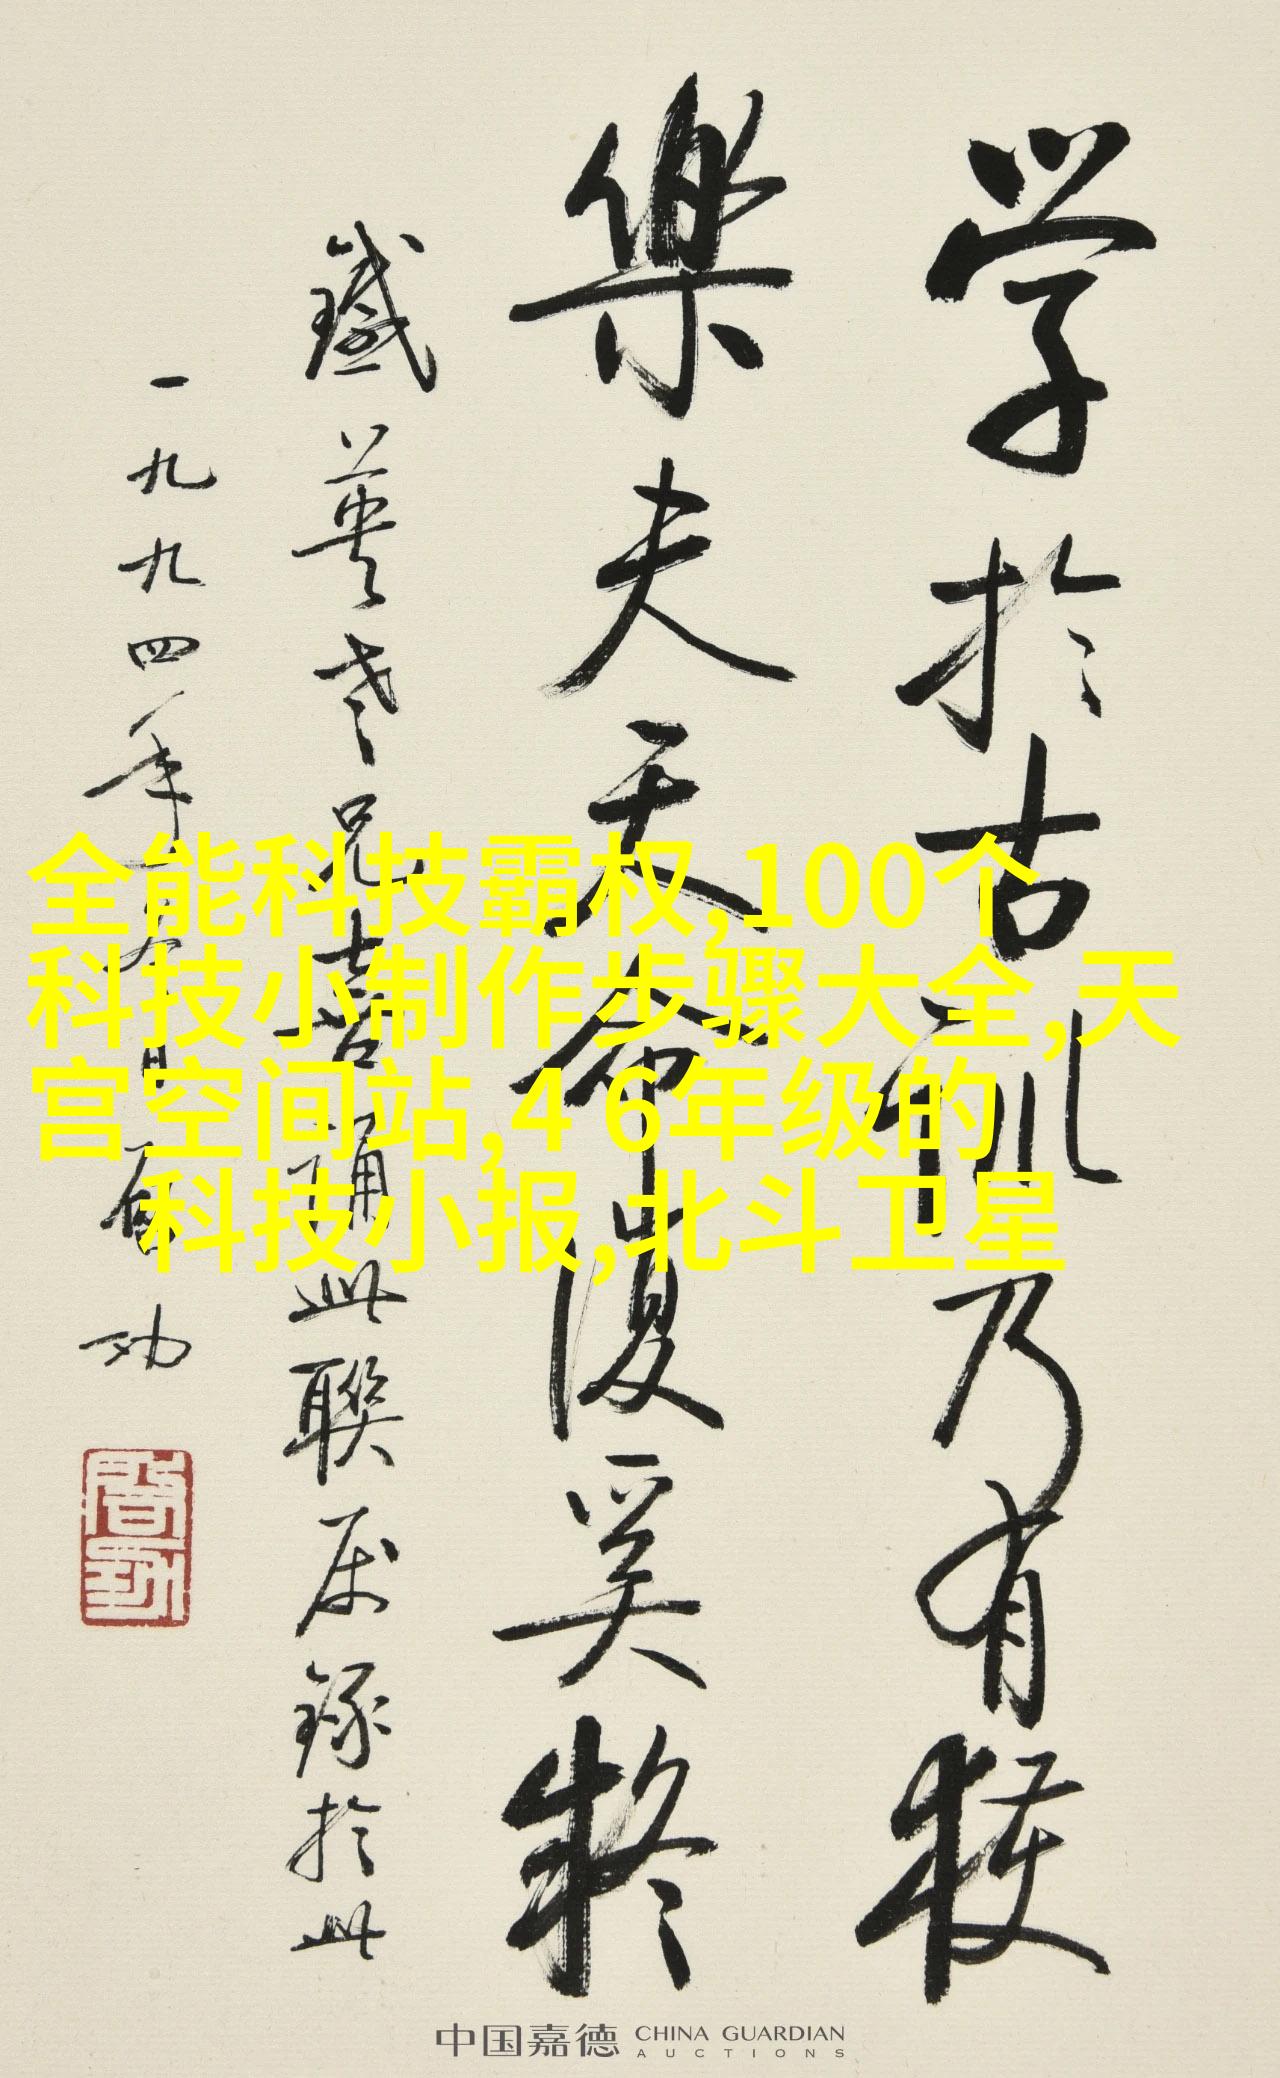 学於古訓乃有獲
樂夫天命復奚疑
鐵英老兄喜誦此聯属録於此
一九九四年 启功
全能科技霸权,100个
科技小制作步骤大全,天
宫空间站,4 6年级的
科技小报,北斗卫星
中国嘉德 CHINA GUARDIAN
AUCTIONS